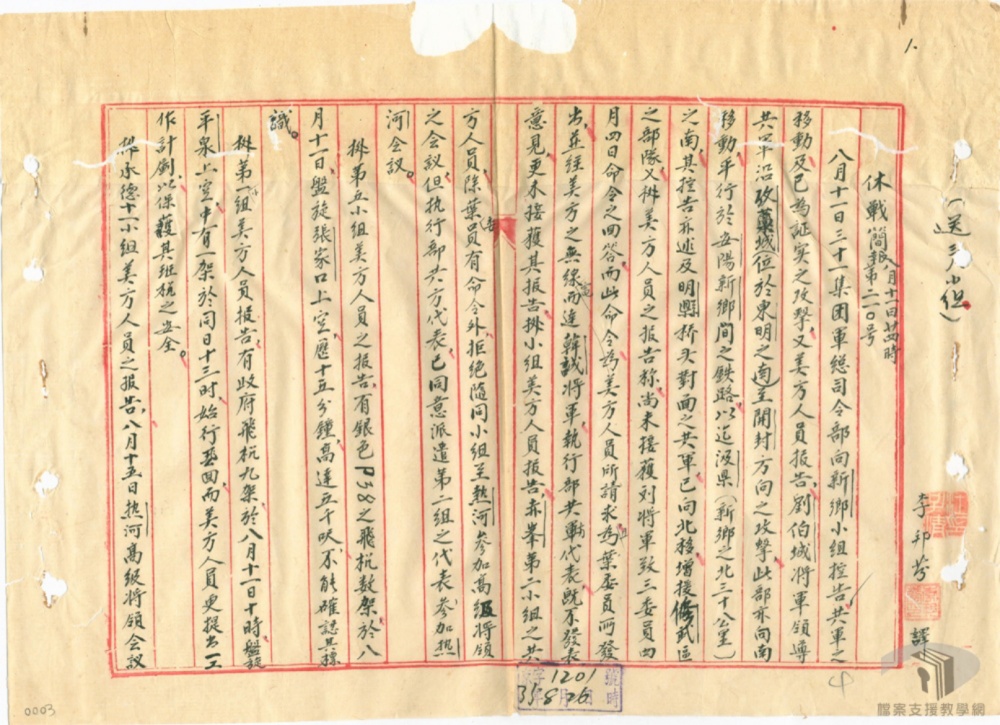 1.
(送三人小組)
休戰簡報第二二〇号 八月十一日廿四時
李邦芬 譯
八月十一日三十一集团軍总司令部向新鄉小组控告共軍之
移動及已為証实之攻擊又美方人員报告劉伯城將軍领導
共軍沿考城(位於東明之南至開封方向之攻擊此部亦向南
移動平行於安陽新鄉间之铁路以迄汲県(新鄉之北三十公里)
之南其控告亦述及明興桥头對面之共軍已向北移增援修武區
之部隊又據美方人員之报告称尚未接獲刘將軍致三委員四
月四日命令之回答而此命令為美方人員所請求為葉委員所發
出并经美方之無線而達韓誠將軍执行部共軍代表既不發表
意見更未接獲其报告據小组美方人員报告赤峯第二小组之共
方人員除葉委員有命令外拒绝隨同小组至热河参加高级將领
之会议但执行部共方代表已同意派遣第二组之代表参加热
河会议。
據第五小组美方人員之报告有銀色P38之飛机数架於八
月十一日盤旋張家口上空歷十五分鐘高達五千呎不能確認其標
識。
據第一组美方人員报告有政府飛机九架於八月十一日十時盤旋
平泉上空中有一架於同日十三时始行
而美方人員更提出一工
作計劃以保護其班机之安全。
據承德十一小组美方人員之报告八月十五日热河高级將领会议
1201
35 8 26
時
0003
檔案支援教學網